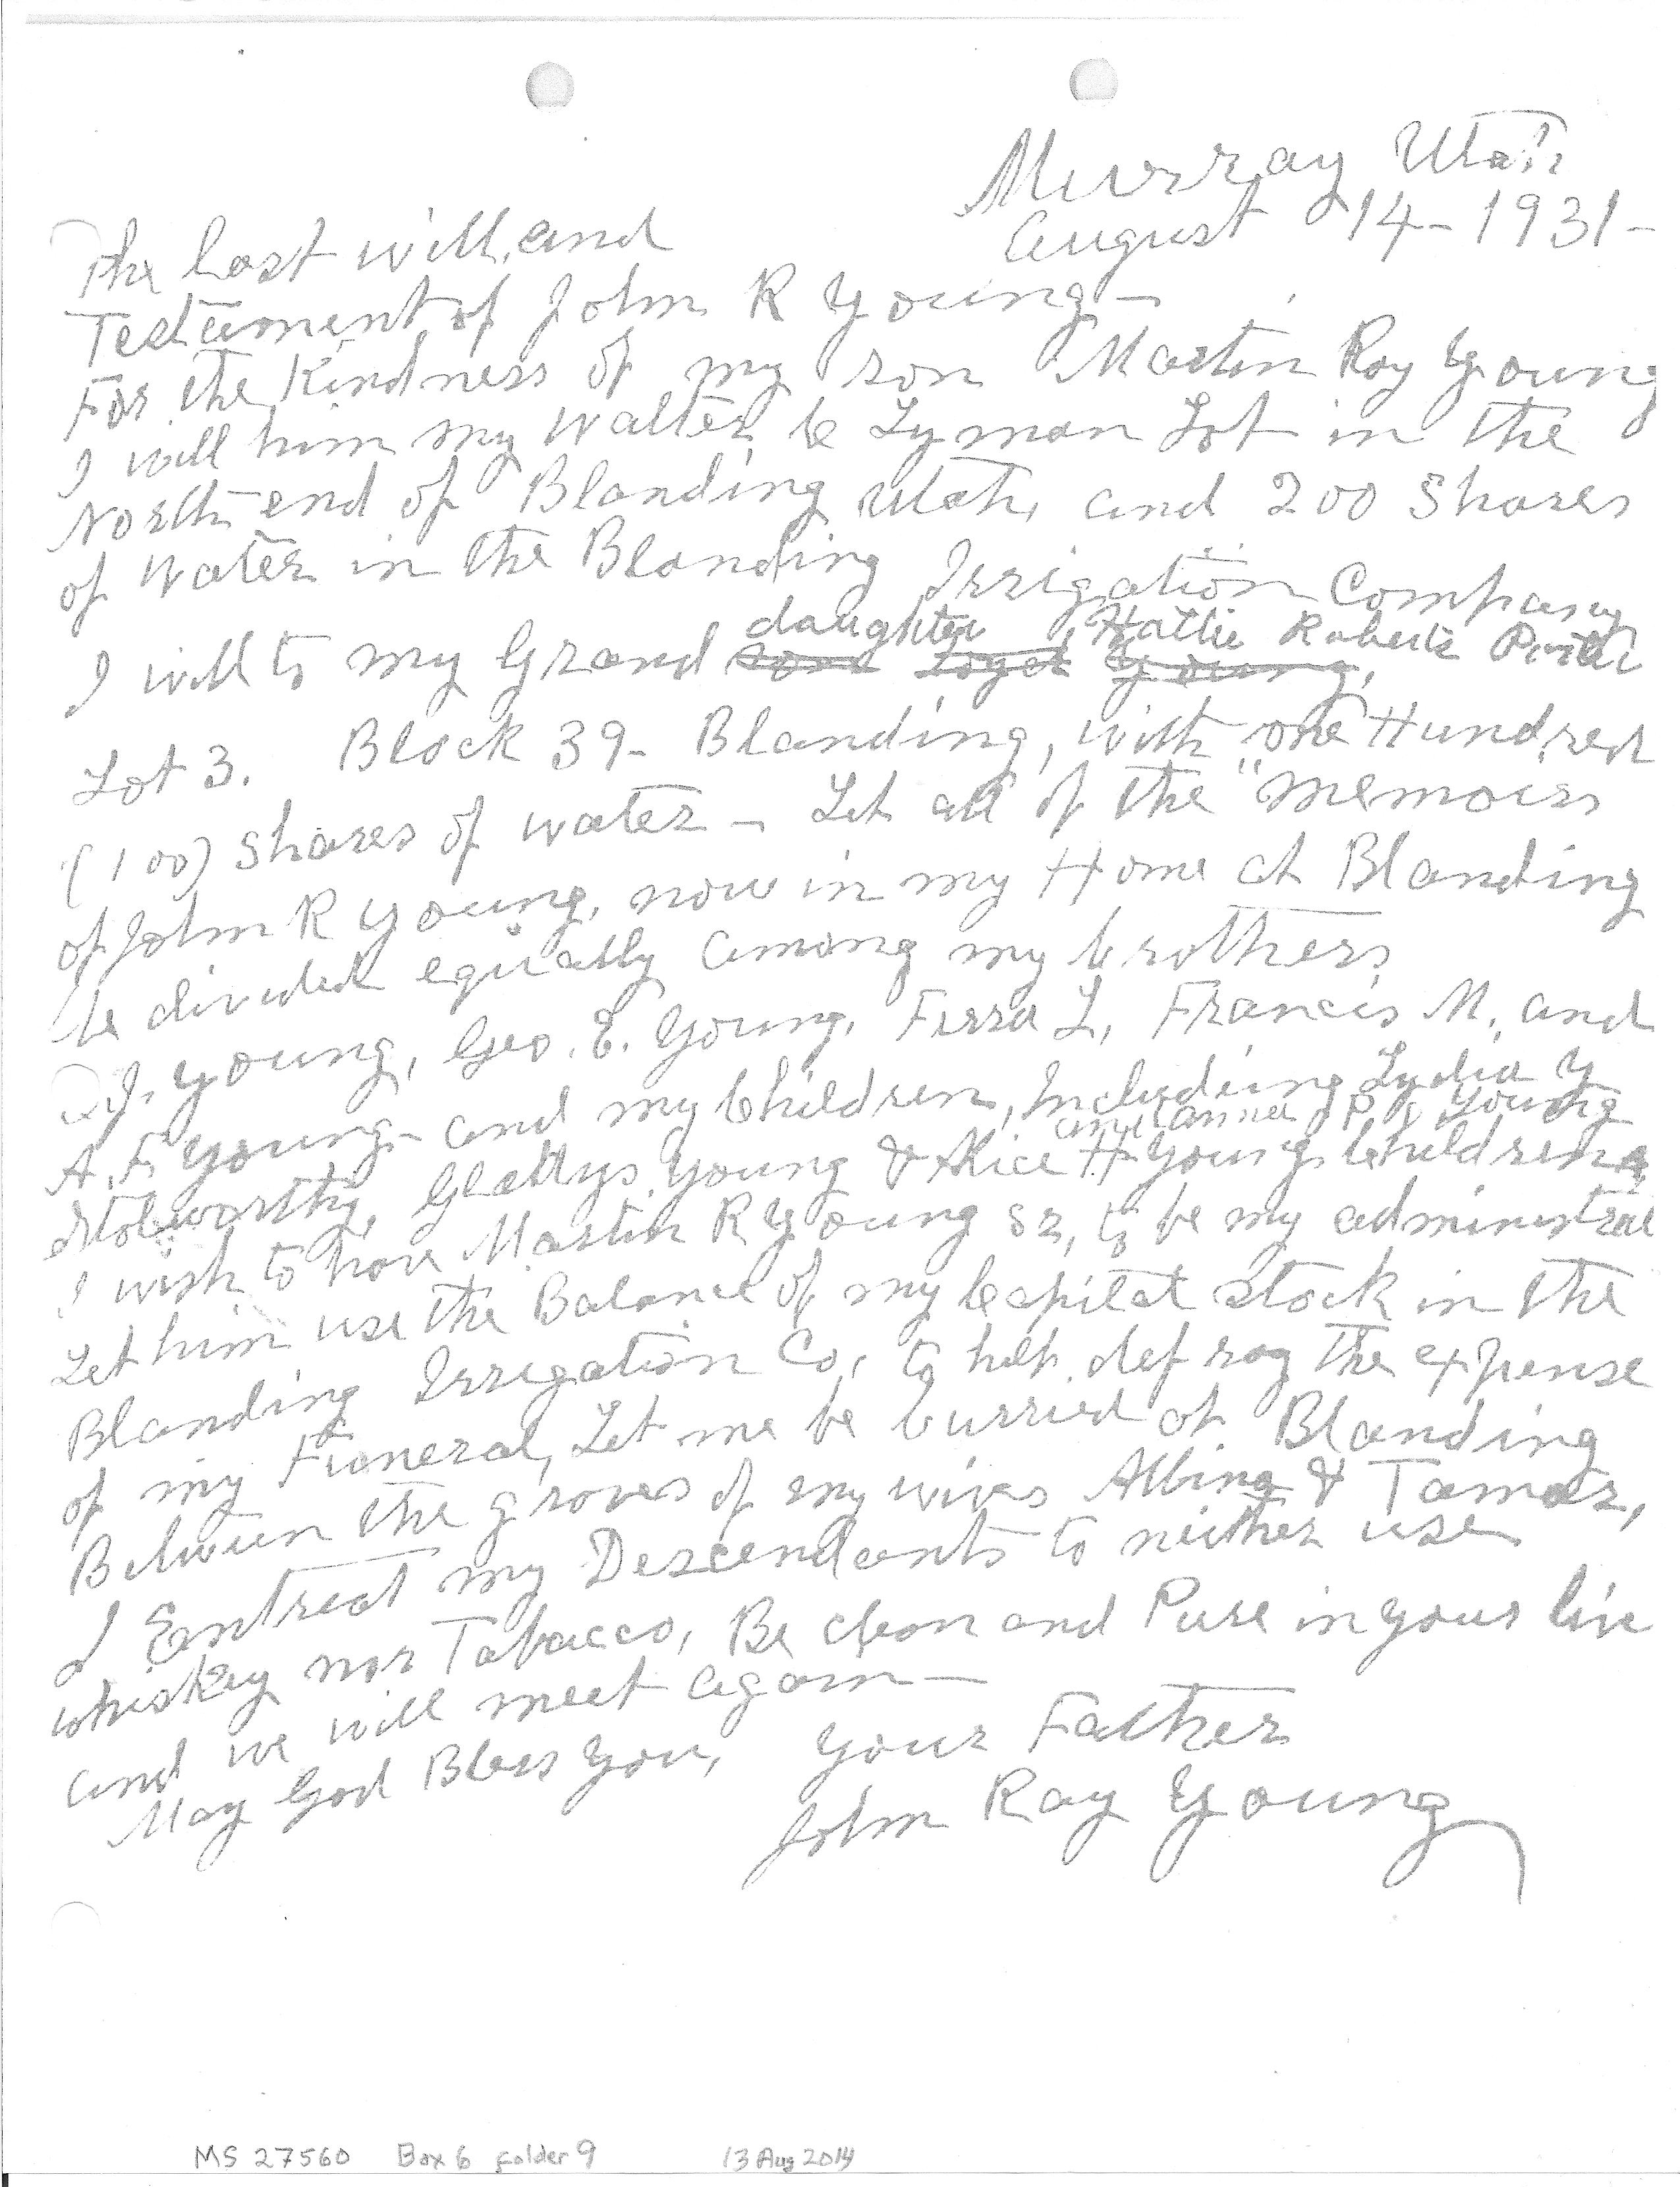 Murray Utah
August 14 - 1931 -
The last will, and
Testament of John R Young -
For the Kindness of my son Martin Ray Young
I will him my Walter C Lyman Lot in the
North-end of Blanding Utah, and 200 Shares
of water in the Blanding Irrigation Company
daughter Hattie Roberts Porter
I will to my Grand sons Loyal Young,
Lot 3. Block 39 - Blanding, with one Hundred
(100) Shares of water - Let all of the "Memoirs
of John R Young, now in my Home at Blanding
be divided equally among my brothers
J. Young, Geo. E. Young, Ferra L, Francis M. and
A. F. Young - and my Children, Including Lydia Y
and
Young
Stolworthy, Gladys Young & Alice H Young Children
I wish to have Martin R Young sr, to be my administrat
Let him use the Balance of my Capital stock in the
Blanding Irregation Co, to help defray the expense
of my Funeral, Let me be burried at Blanding
Between the graves of my wives Albina & Tamar,
I Entreat my Descendants to neither use
whiskey nor Tobacco, Be clean and Pure in your live
and we will meet again -
May God Bless you, Your Father
John Ray Young
MS 27560 Box 6 folder 9 13 Aug 2014